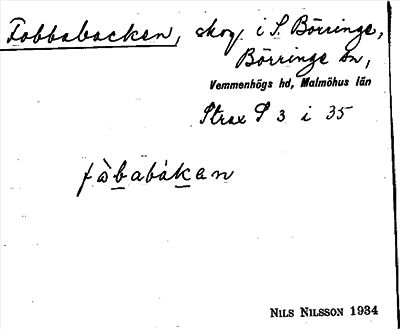 Fobbabacken, skog i S. Börringe,
Börringe sn,
Vemmenhögs hd, Malmöhus län
Strax S 3 i 35
fàbabákan
NILS NILSSON 1934